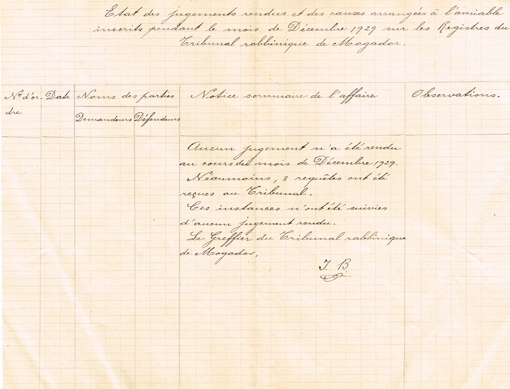 Etat des jugements rendus et des causes arrangées à l'amiable
inscrits pendant le mois de Décembre 1929 sur les Registres du
Tribunal rabbinique de Mogador.
N° d'or dre
Date
Noms des parties
Notice sommaire de l'affaire
Observations.
Demandeurs
Défendeurs
Aucun jugement n'a été rendu
au cours du mois de Décembre 1929.
Néanmoins, 8 requêtes ont été
reçues au Tribunal.
Ces instances n'ont été suivies
d'aucun jugement rendu.
Le Greffier du Tribunal rabbinique
de Mogador,
J. B.